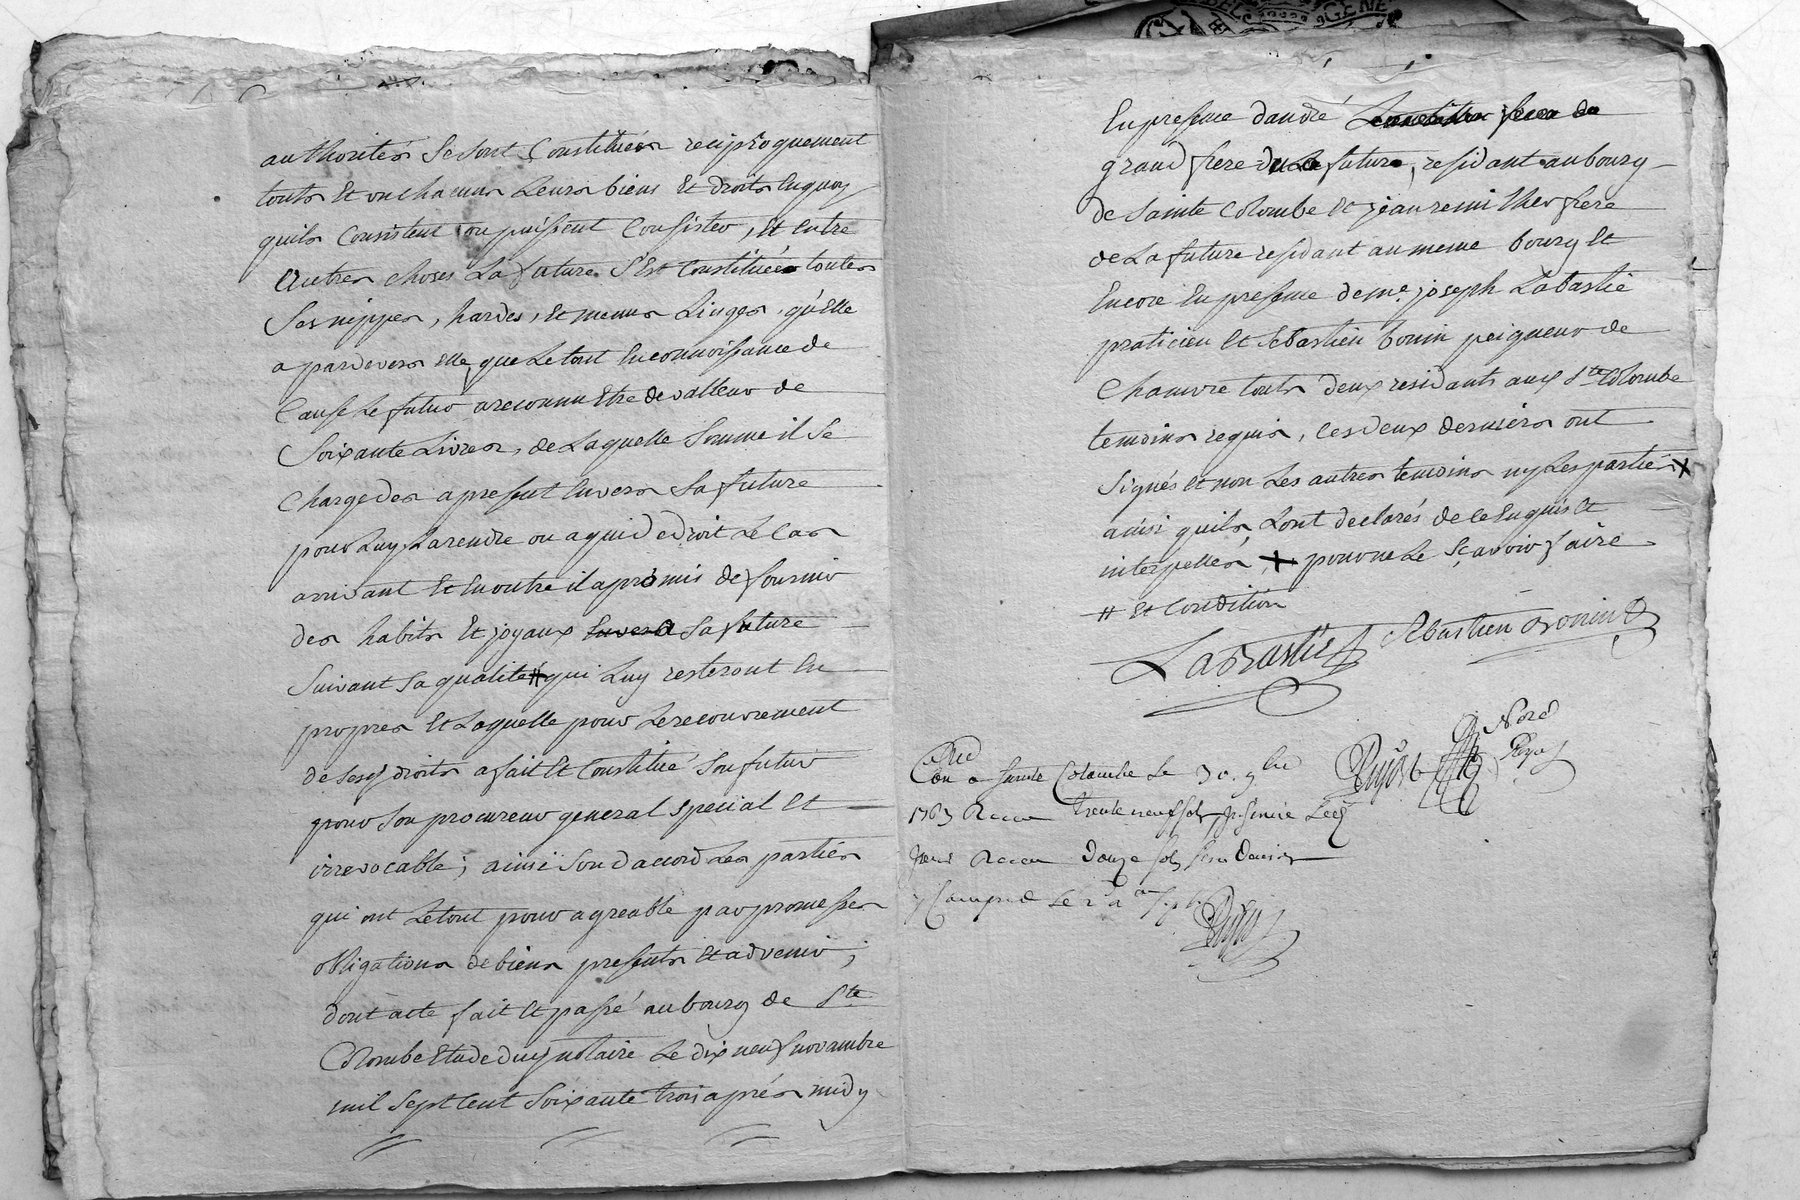 authorités se sont Constitués reciproquement
touts Et un chacuns Leurs biens Et droits En quoy
quils Consistent ou puissent Consister, Et Entre
Autres choses La future S'Est Constituée toutes
Ses nippes, hardes, Et menus Linges, qu'elle
a pardevers elle, que Le tout En connoissance de
Cause Le futur a reconnu Etre de valleur de
Soixante Livres, de Laquelle Somme il Se
Charge des a present Envers Sa future
pour Luy La rendre ou a qui de droit Le Cas
arrivant Et En outre il a promis de fournir
des habits Et joyaux Envers Sa future
Suivant Sa qualité # qui Luy resteront En
propres Et Laquelle pour Le recouvrement
de Sesd droits a fait Et Constitué Son futur
pour Son procureur general special Et
irrevocable; ainsi Sont d'accord Les parties
qui ont Le tout pour agreable par promesses
obligations de biens presents Et advenir;
dont acte fait Et passé au bourg de Ste
Colombe Etude duy notaire Le dix neuf novembre
mil Sept Cent Soixante trois aprés midy
En presence d'andré
grand frere de La future, residant au bourg
de Sainte Colombe Et jean remi frere
de La future residant au meme bourg Et
Encore En presence de me. joseph Labastie
praticien Et Sebastien bonin peigneur de
Chanvre touts deux residants aux Ste Colombe
temoins requis, Ces deux derniers ont
Signés Et non Les autres temoins ny Les parties X
ainsi quils Lont declarés de ce Enquis Et
interpellés, X pour ne Le Sçavoir faire
# Et Condition
LaBastie Sebastien Bonin
Nore
Con a Sainte Colombe Le 30. 9bre
1763 Recu trente neuf sols
Recu Douze sols Six Deniers
y Compris Le